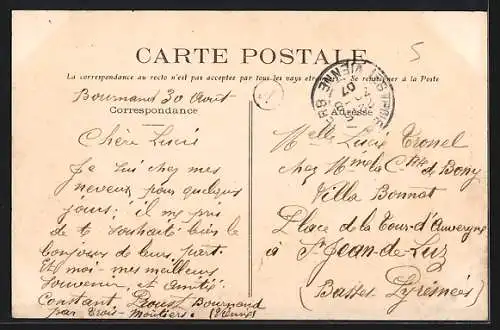 CARTE POSTALE
La correspondance au recto n'est pas acceptée par tous les pays étrangers. Se renseigner à la Poste
Correspondance
Adresse
5
Bournand 30 Aout
Chère Lucie
Je suis chez mes
neveux pour quelques
jours; il me prie
de te souhaité bien le
bonjours de leurs part.
Et moi - mes meilleurs
souvenir, et amitié.
Constant Bournand
par Trois-Moutiers.
Melle Lucie
chez Mme la Ctsse de Bony
Villa Bonnat
Place de la Tour-d'Auvergne
à St Jean-de-Luz
(Basses Pyrénées)
VIENNE
07